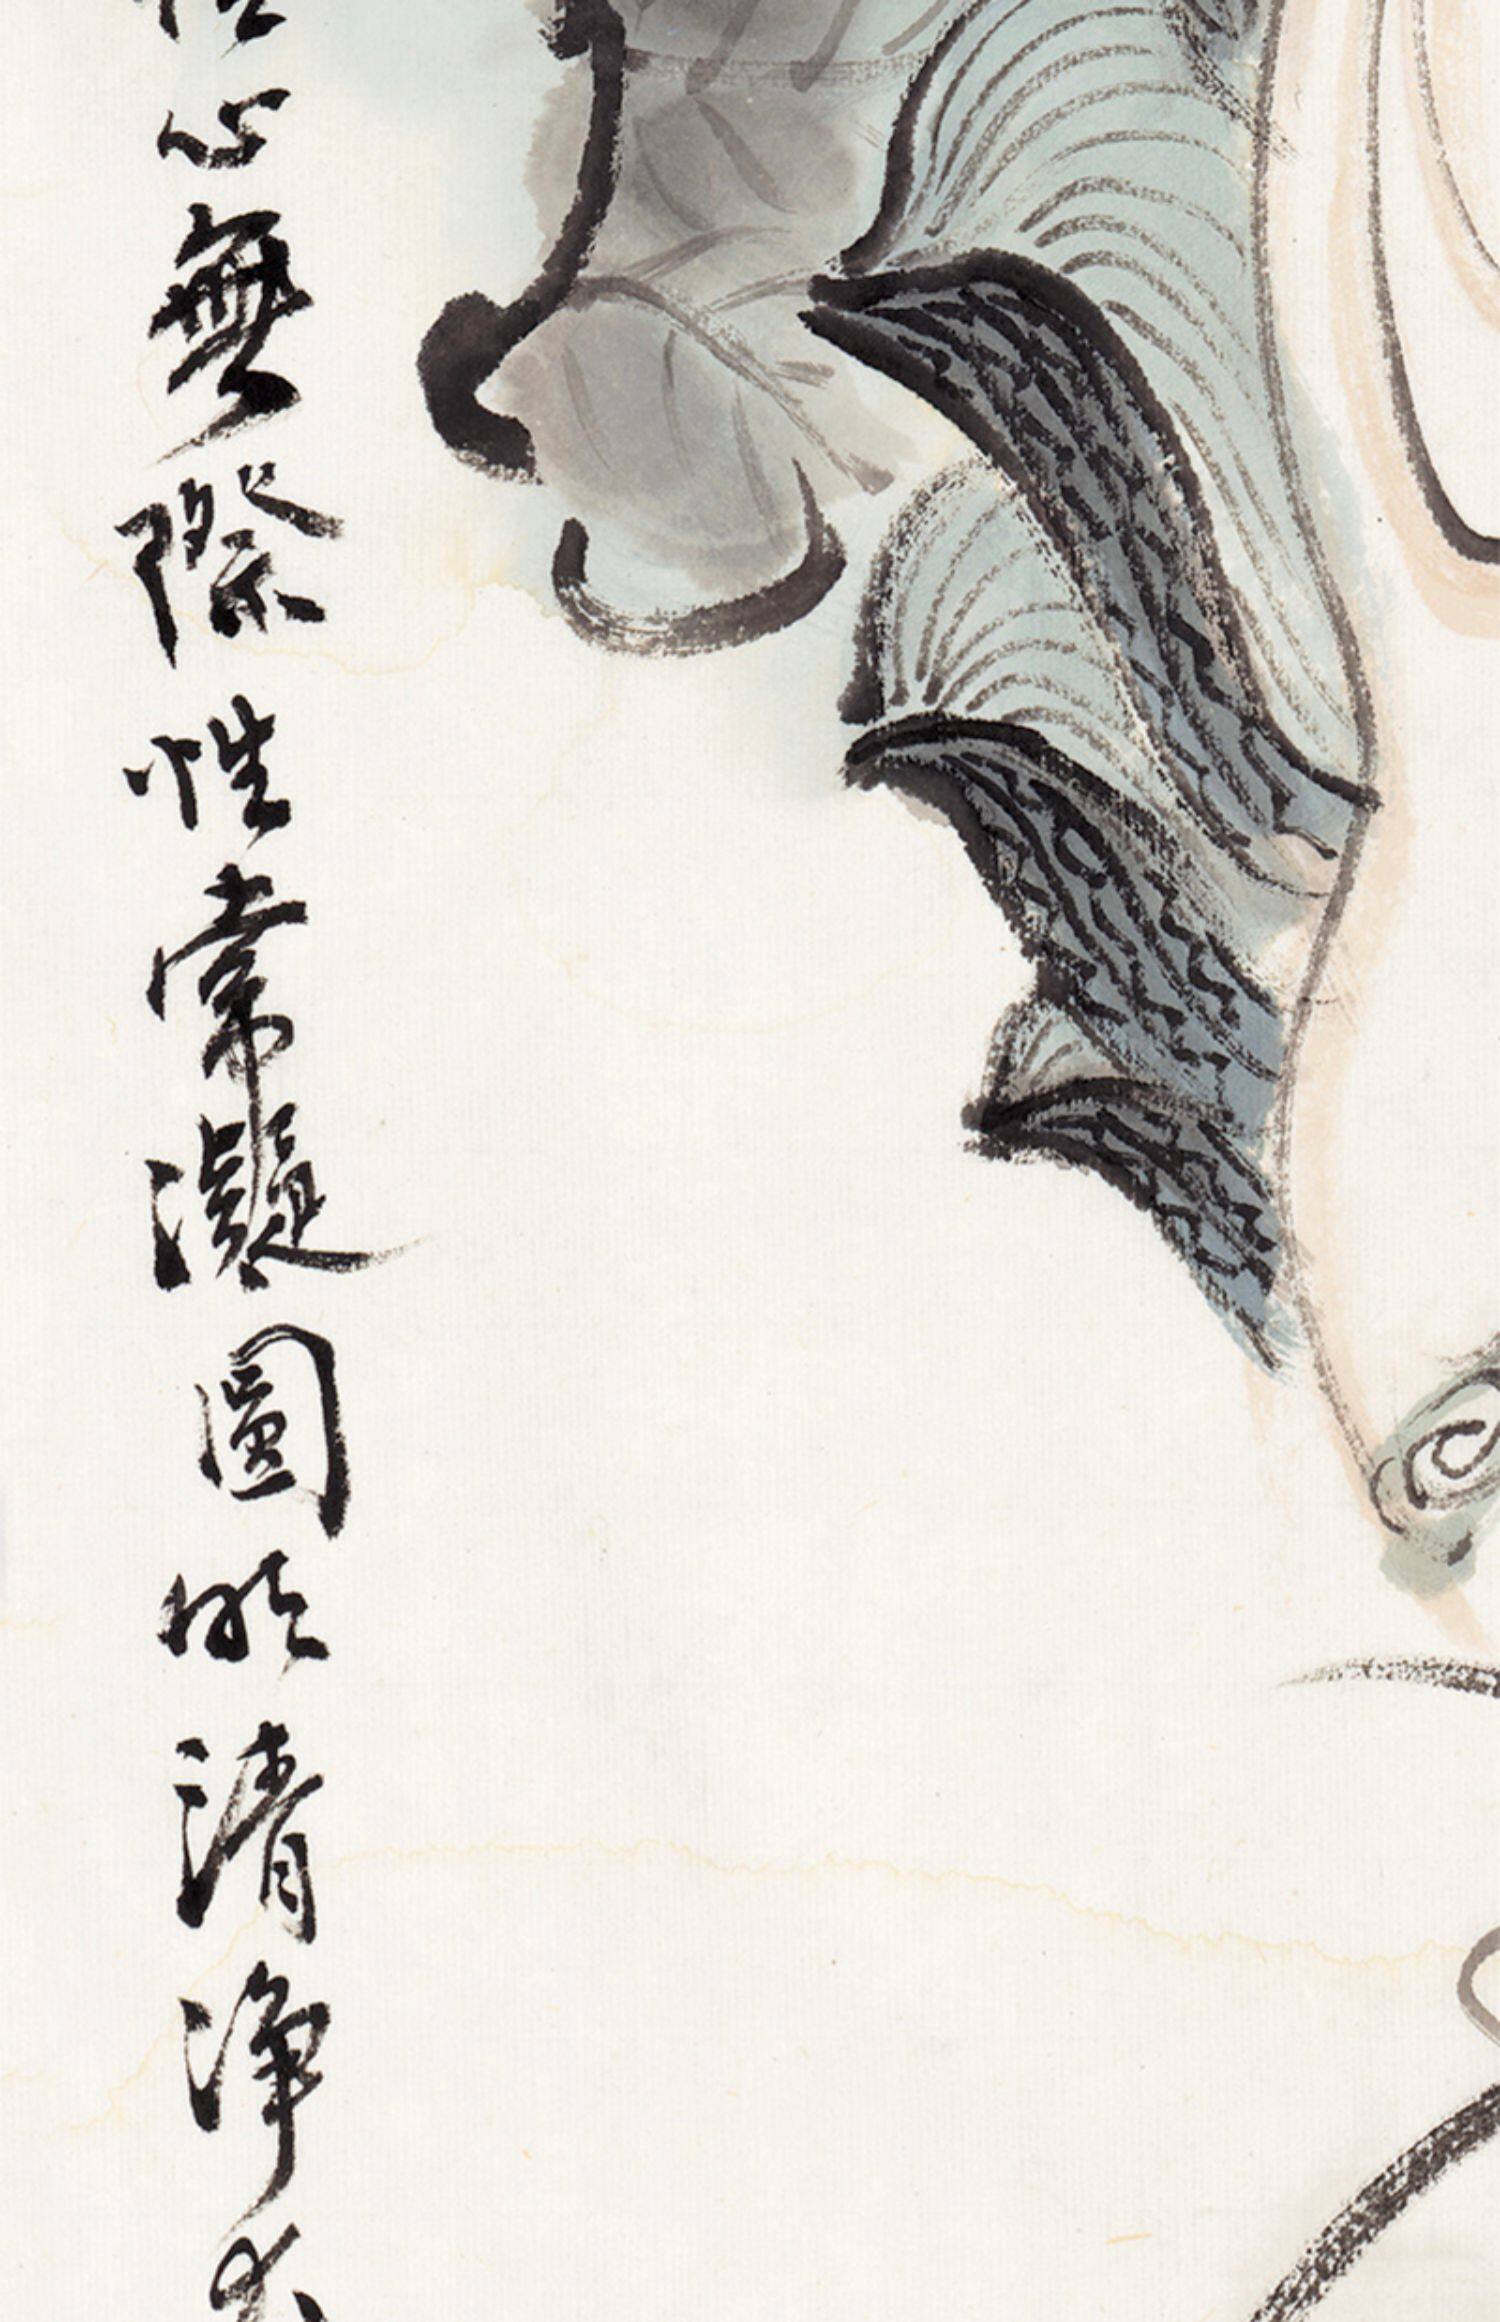 心無際性常凝圖明清淨